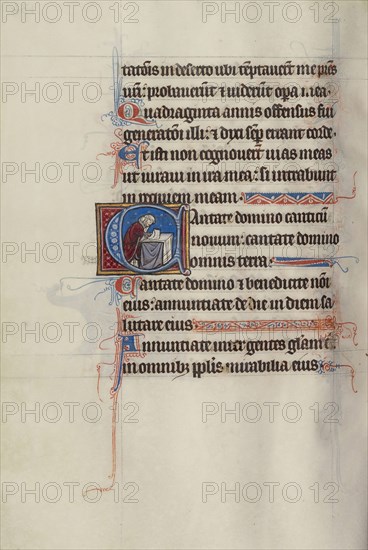 tatois in deserto ubi teptavert me pres
vri: probaverut & viderut opa mea.
Quadraginta annis offensus fui
generatoi illi: & dixi sep errant corde.
Et isti non cognoverut vias meas
ut iuravi in ira mea: si intrabunt
in requiem meam.
Cantate domino canticu
novum: cantate domino
omnis terra.
Cantate domino & benedicite noi
eius: annuntiate de die in diem sa
lutare eius.
Annuntiate inter gentes glam
in omnib; pplis mirabilia eius.
PHOTO12